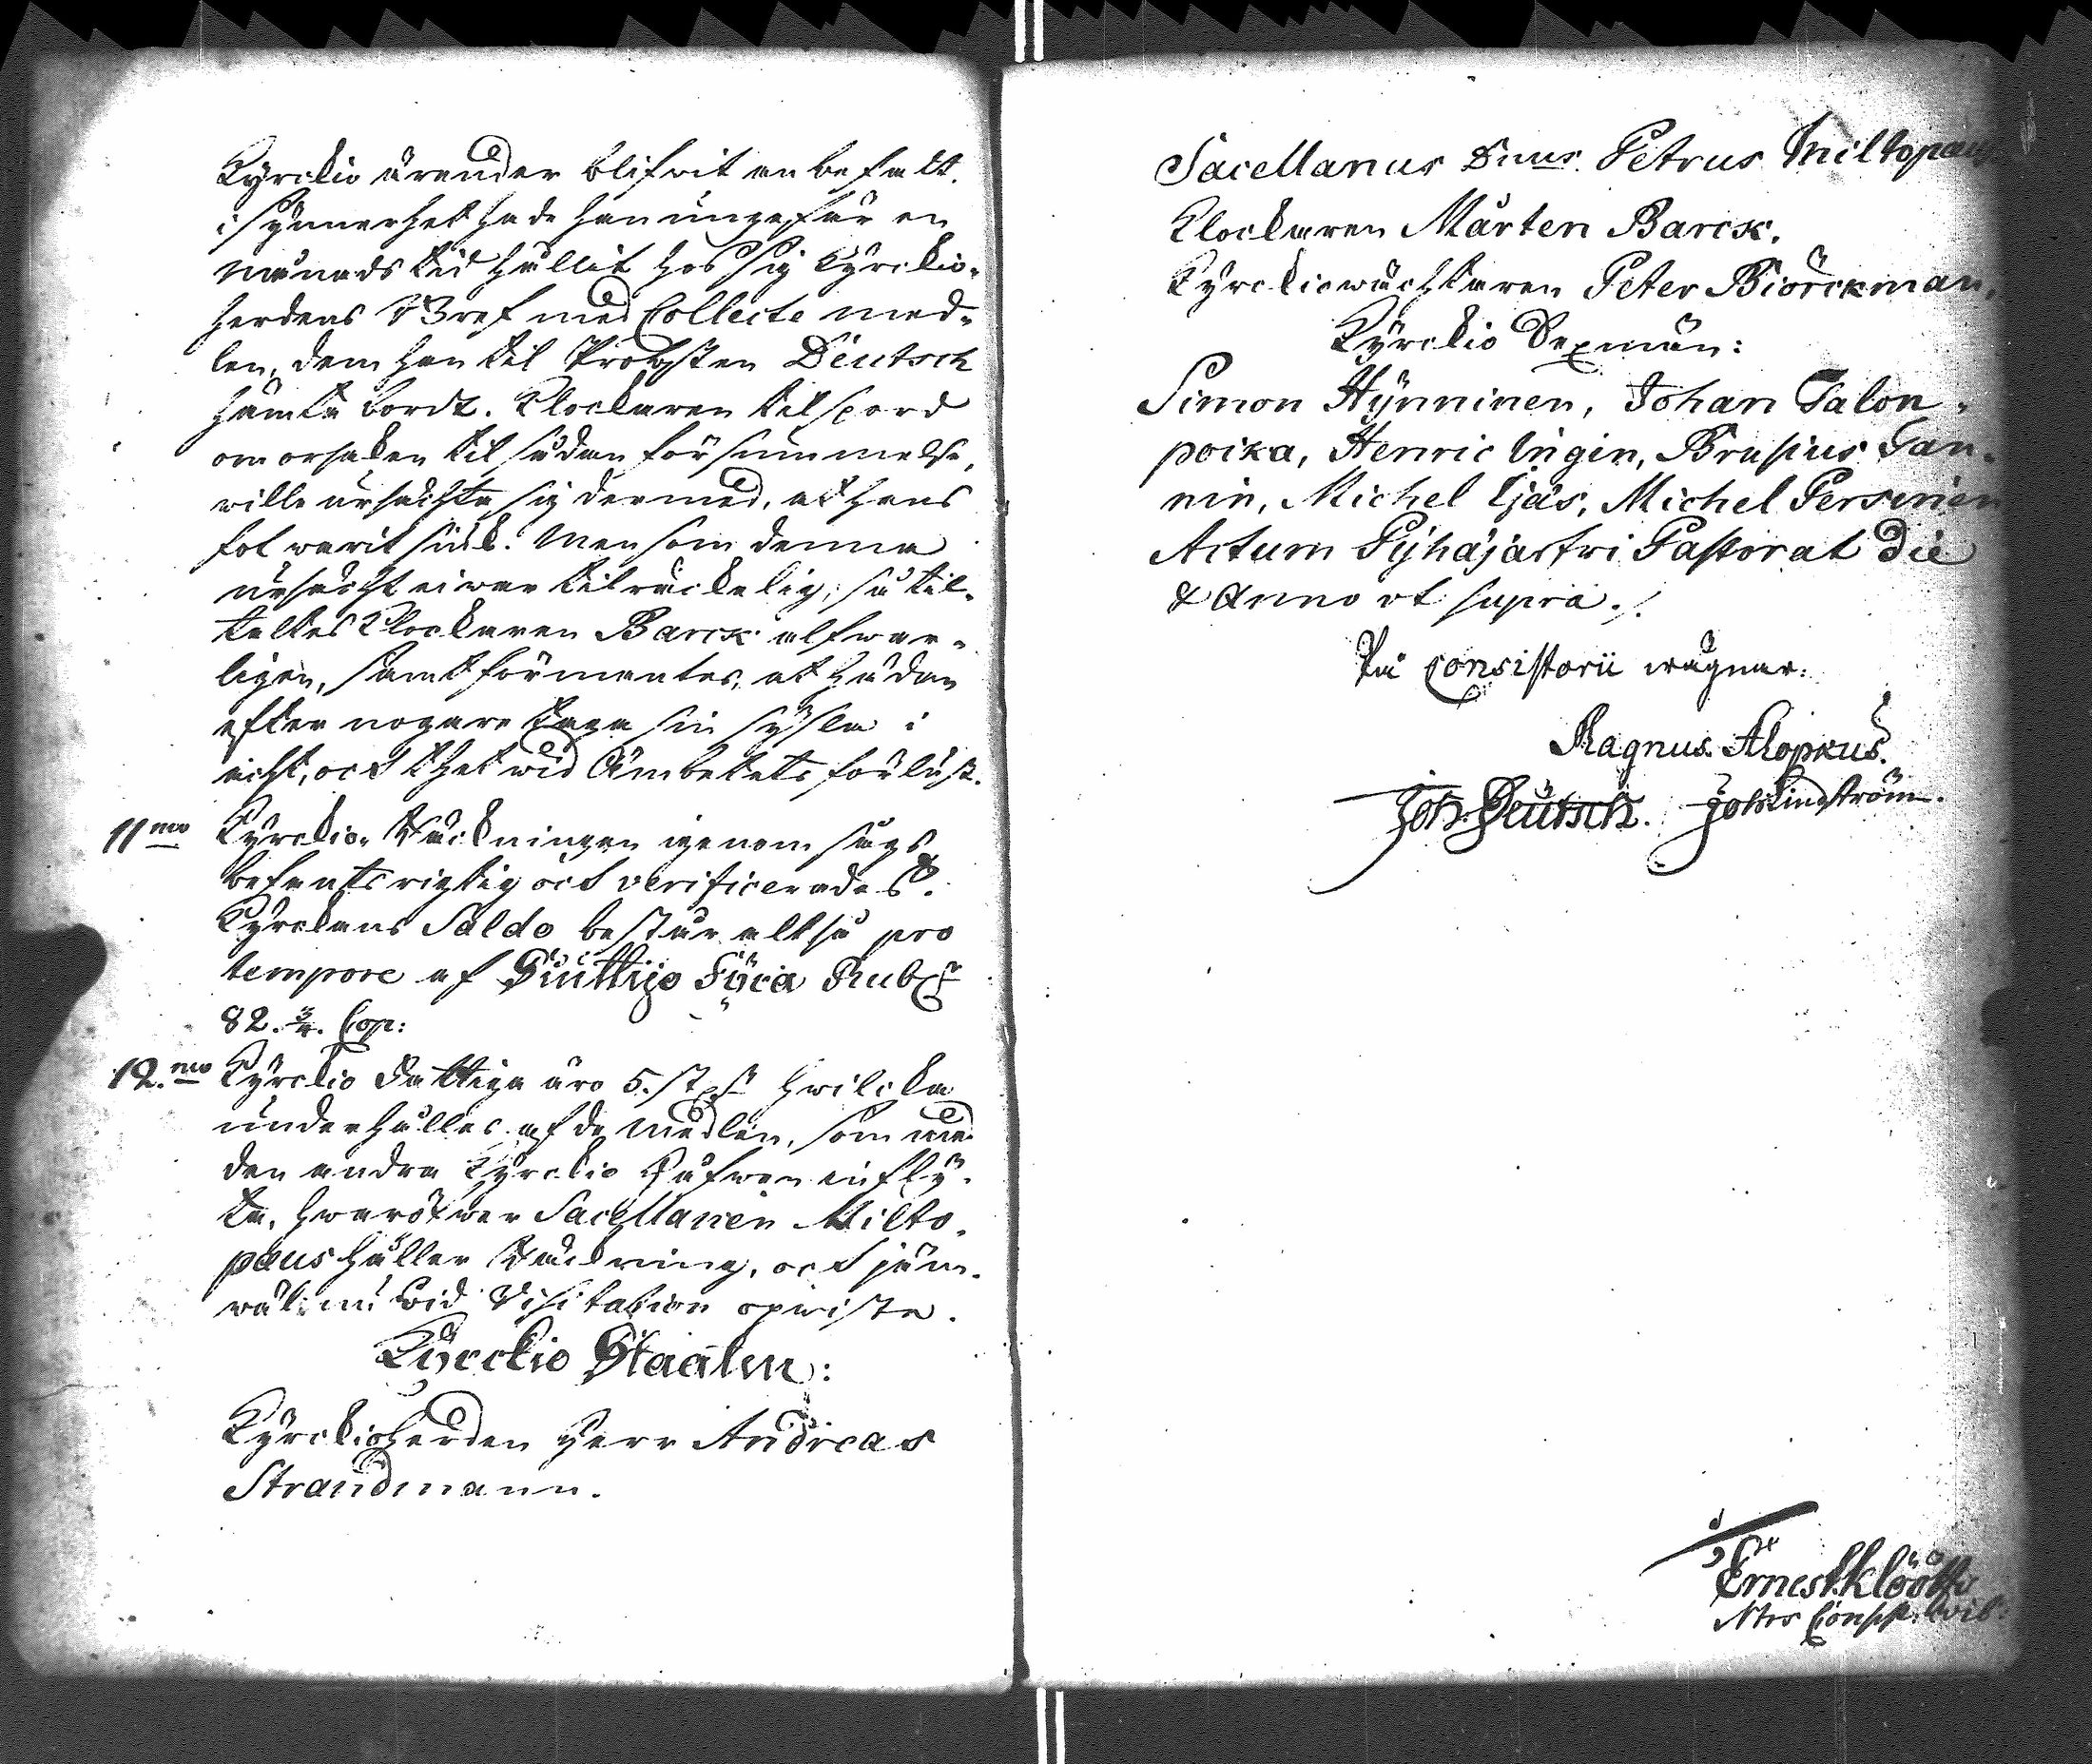 Kyrckio ärender blifwit anbefalt.
i synnerhet hade han ungefär en
månads tid hållit hos sig Kyrckio-
herdens Bref med Collecte med-
len, dem han til Probsten Deutsch
hämta bordt. Klockaren tilspord
om orsaken til sådan försummelse,
wille ursächta sig dermed, at hans
fot warit siuk. Men som denna
ursächt ei war tilräckelig, så til-
taltes Klockaren Barck alfwar-
ligen, samt förmantes, at hädan
efter nogare taga sin sysla i
acht, och thet wid Ämbetets förlust.
11mo Kyrckio-Räckningen igenom sågs
befants richtig och verificerades.
Kyrckans Saldo består altså pro
tempore af Siuttijo Fyra Rubr
82. 3/4. Cop:
12.mo Kyrckio fattiga äro 5. st hwilcka
underhålles af de medlen, som med
den andra Kyrckio håfwen infly-
ta, hwaröfwer Sacellanen Milto-
paus håller Räckning, och jäm-
wäl nu wid Visitation opwiste.
Kyrckio Staaten:
Kyrckioherden Herr Andreas
Strandmann.
Sacellanus Dnus. Petrus Miltopaus
Klockaren Mårten Barck.
Kyrckiowächtaren Peter Biörckman,
Kyrckio Sexmän:
Simon Hynninen, Johan Talon-
poika, Henric Ingin, Brusius Tan-
nin, Michel Ijäs, Michel Persinen
Actum Pyhäjarfwi Pastorat Die
& Anno ut supra ./.
På Consistorii wägnar:
Magnus Alopæus.
Joh: Deutsch. Joh Lindström.
Ernest. Klöö
Ntrs Consist: Wib: